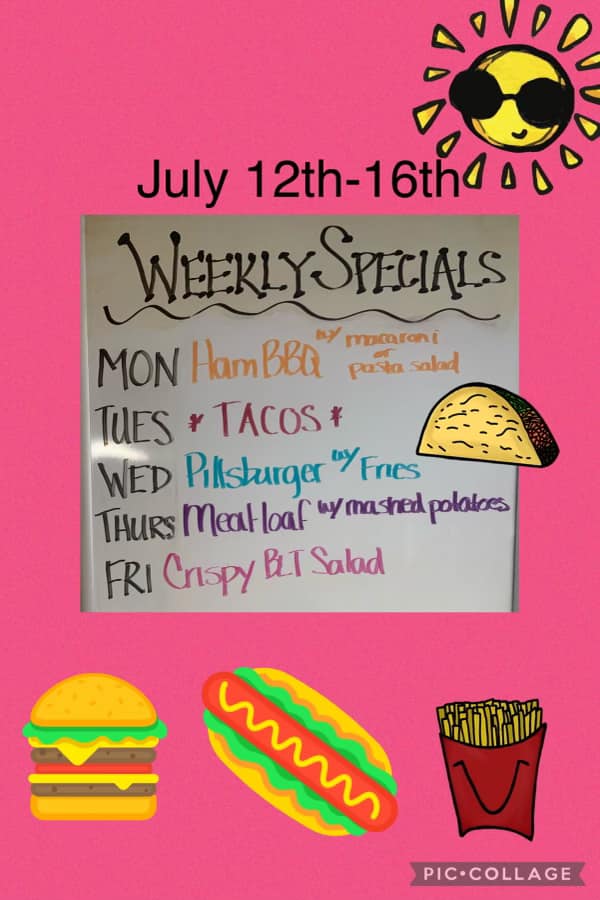 July 12th-16th
WEEKLY SPECIALS
MON Ham BBQ w/ macaroni or pasta salad
TUES * TACOS *
WED Pittsburger w/ Fries
THURS Meatloaf w/ mashed potatoes
FRI Crispy BLT Salad
PIC•COLLAGE